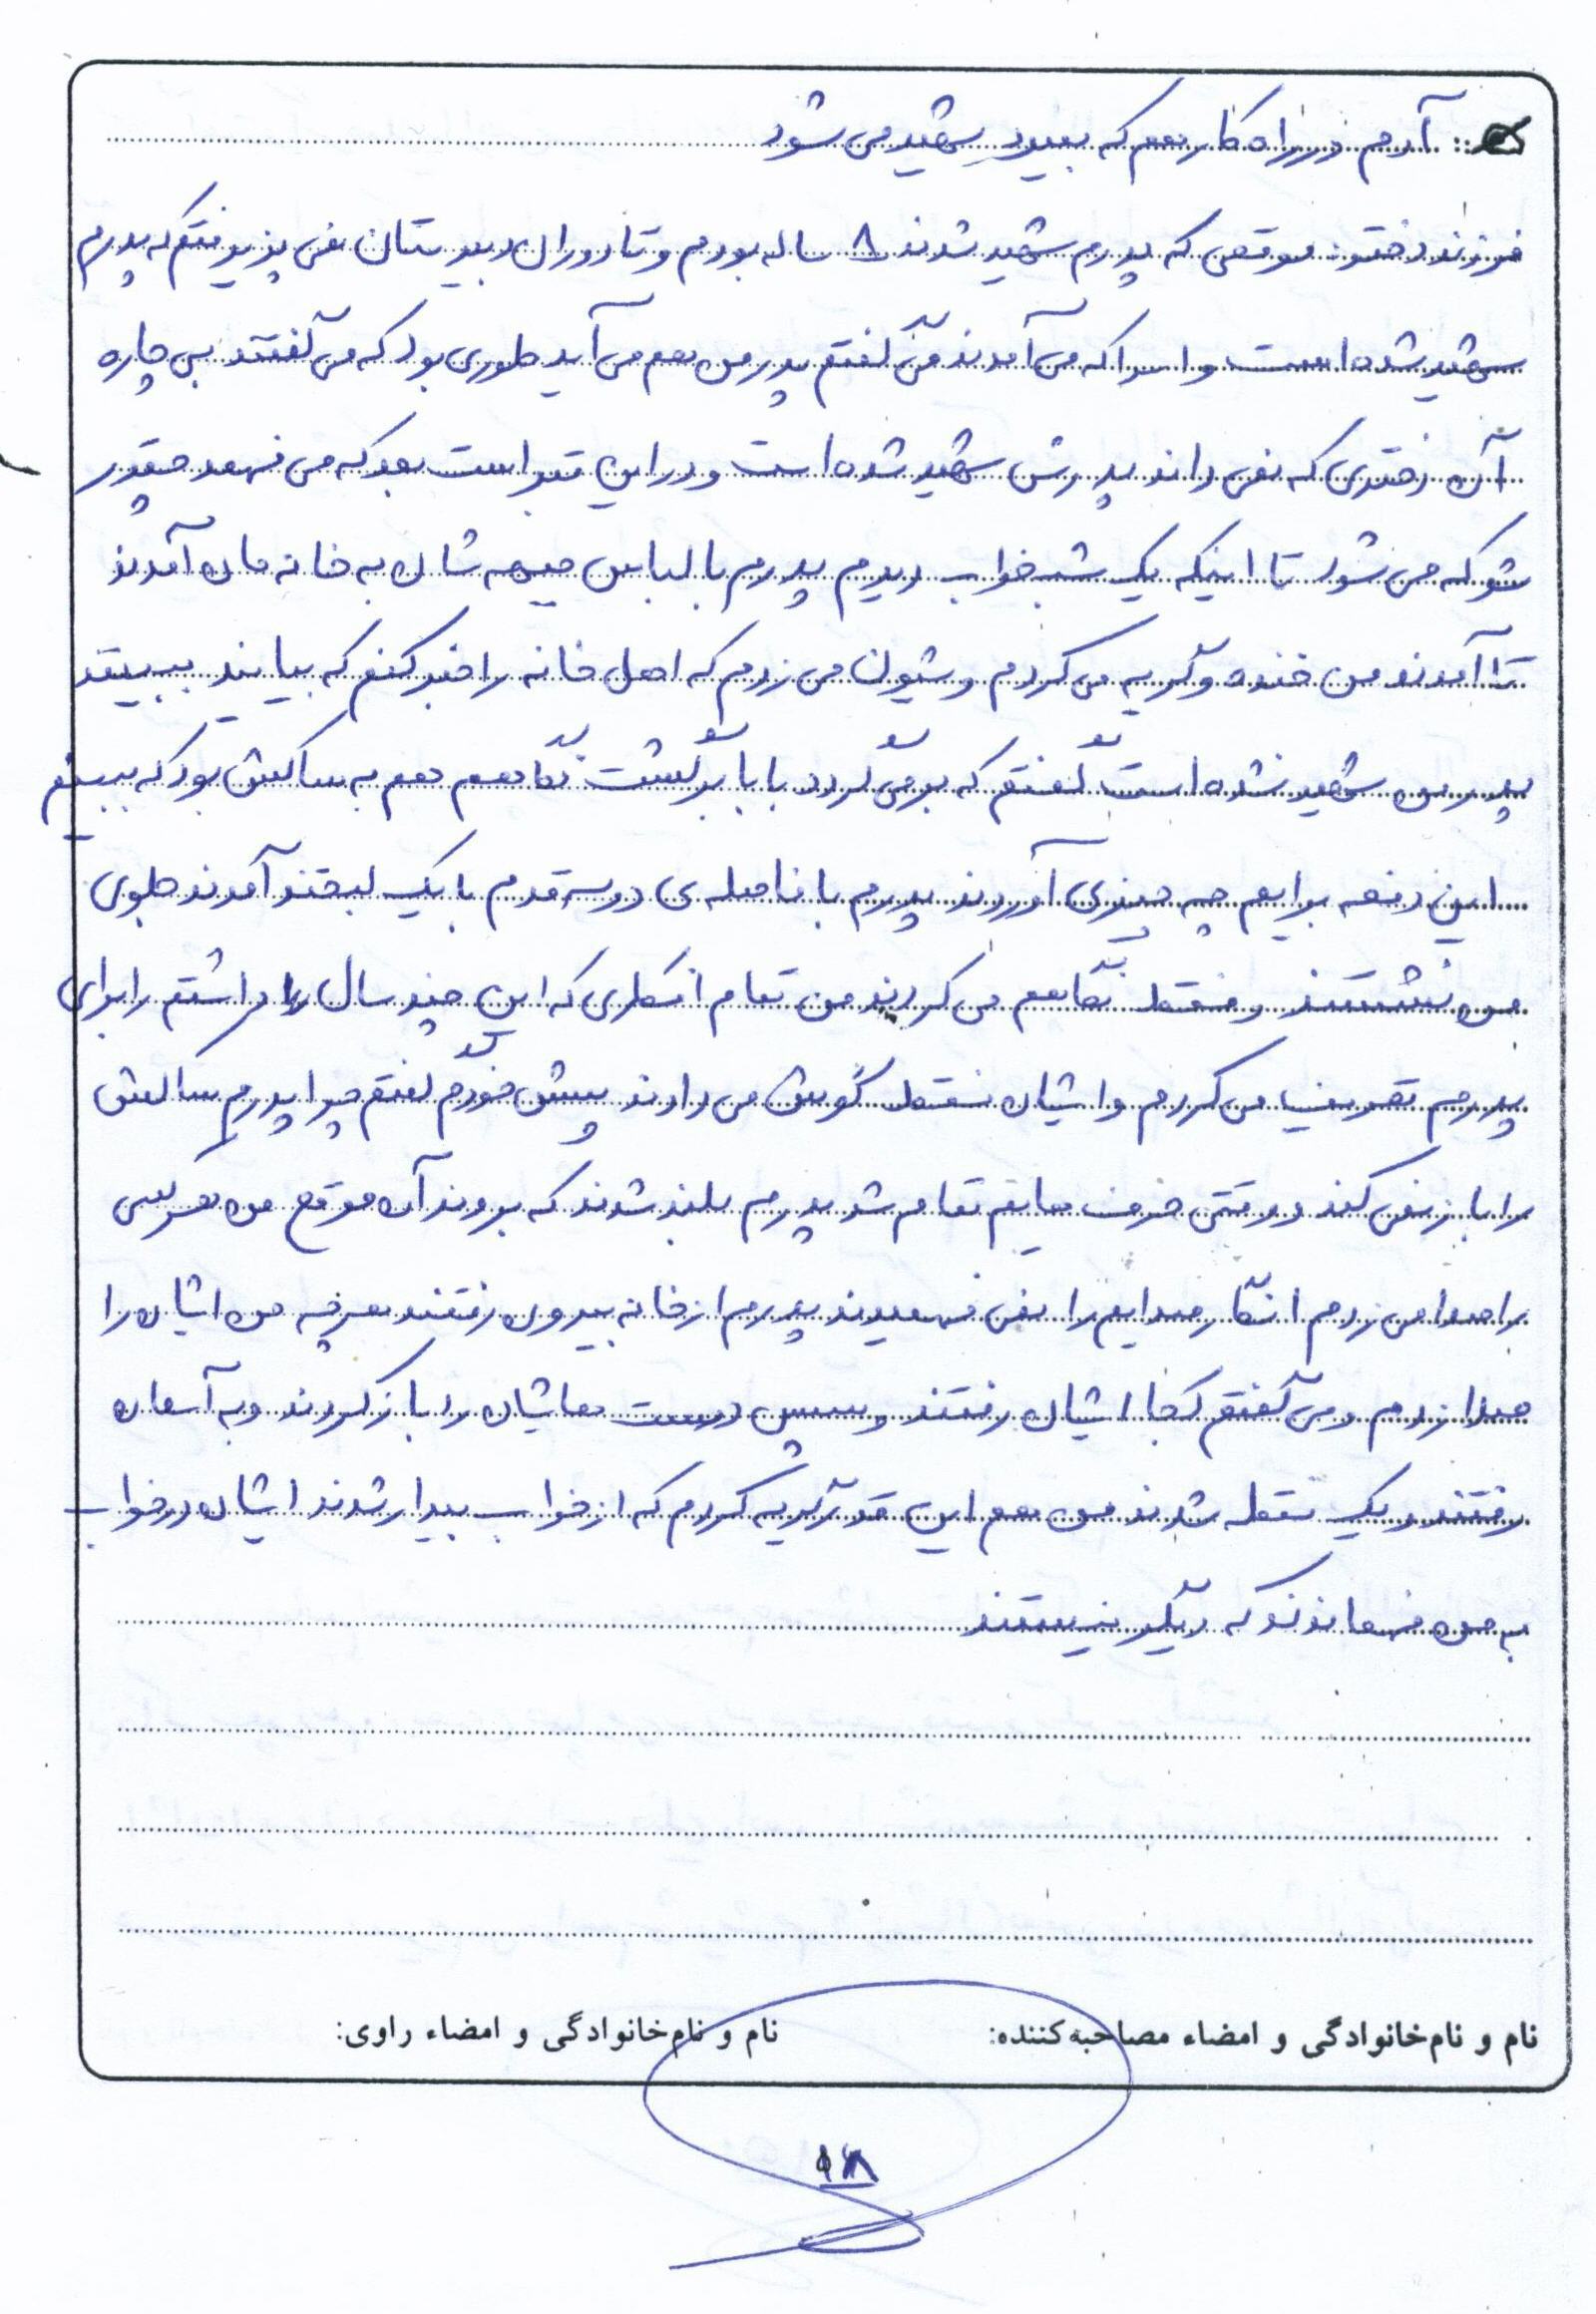 آدم در راه کار هم که بمیرد شهید می شود
فرزند دختر: موقعی که پدرم شهید شدند ۸ ساله بودم و تا دوران دبیرستان نمی پذیرفتم که پدرم
شهید شده است و اسرا که می آمدند می گفتم پدر من هم می آید طوری بود که می گفتند بی چاره
آن دختری که نمی داند پدرش شهید شده است و در این قبر است بعد که می فهمد چقدر
شوکه می شود تا اینکه یک شب خواب دیدم پدرم با لباس جبهه شان به خانه مان آمدند
تا آمدند من خنده و گریه می کردم و شیون می زدم که اهل خانه را خبر کنم که بیایند ببینند
پدر من شهید نشده است گفتم که برمی گردد بابا برگشت نگاهم هم به ساکش بود که ببینم
این دفعه برایم چه چیزی آوردند پدرم با فاصله ی دو سه قدم با یک لبخند آمدند جلوی
من نشستند و فقط نگاهم می کردند من تمام افکاری که این چند سال را داشتم را برای
پدرم تعریف می کردم و ایشان فقط گوش می دادند پیش خودم گفتم چرا پدرم ساکش
را باز نمی کند و وقتی حرف هایم تمام شد پدرم بلند شدند که بروند آن موقع من هر کسی
را صدا می زدم انگار صدایم را نمی فهمیدند پدرم از خانه بیرون رفتند هر چه من ایشان را
صدا زدم و می گفتم کجا ایشان رفتند و سپس دست هایشان را باز کردند و به آسمان
رفتند و یک نقطه شدند من هم این قدر گریه کردم که از خواب بیدار شدند ایشان در خواب
به من فهماندند که دیگر نیستند
نام و نام‌خانوادگی و امضاء مصاحبه‌کننده: نام و نام‌خانوادگی و امضاء راوی: